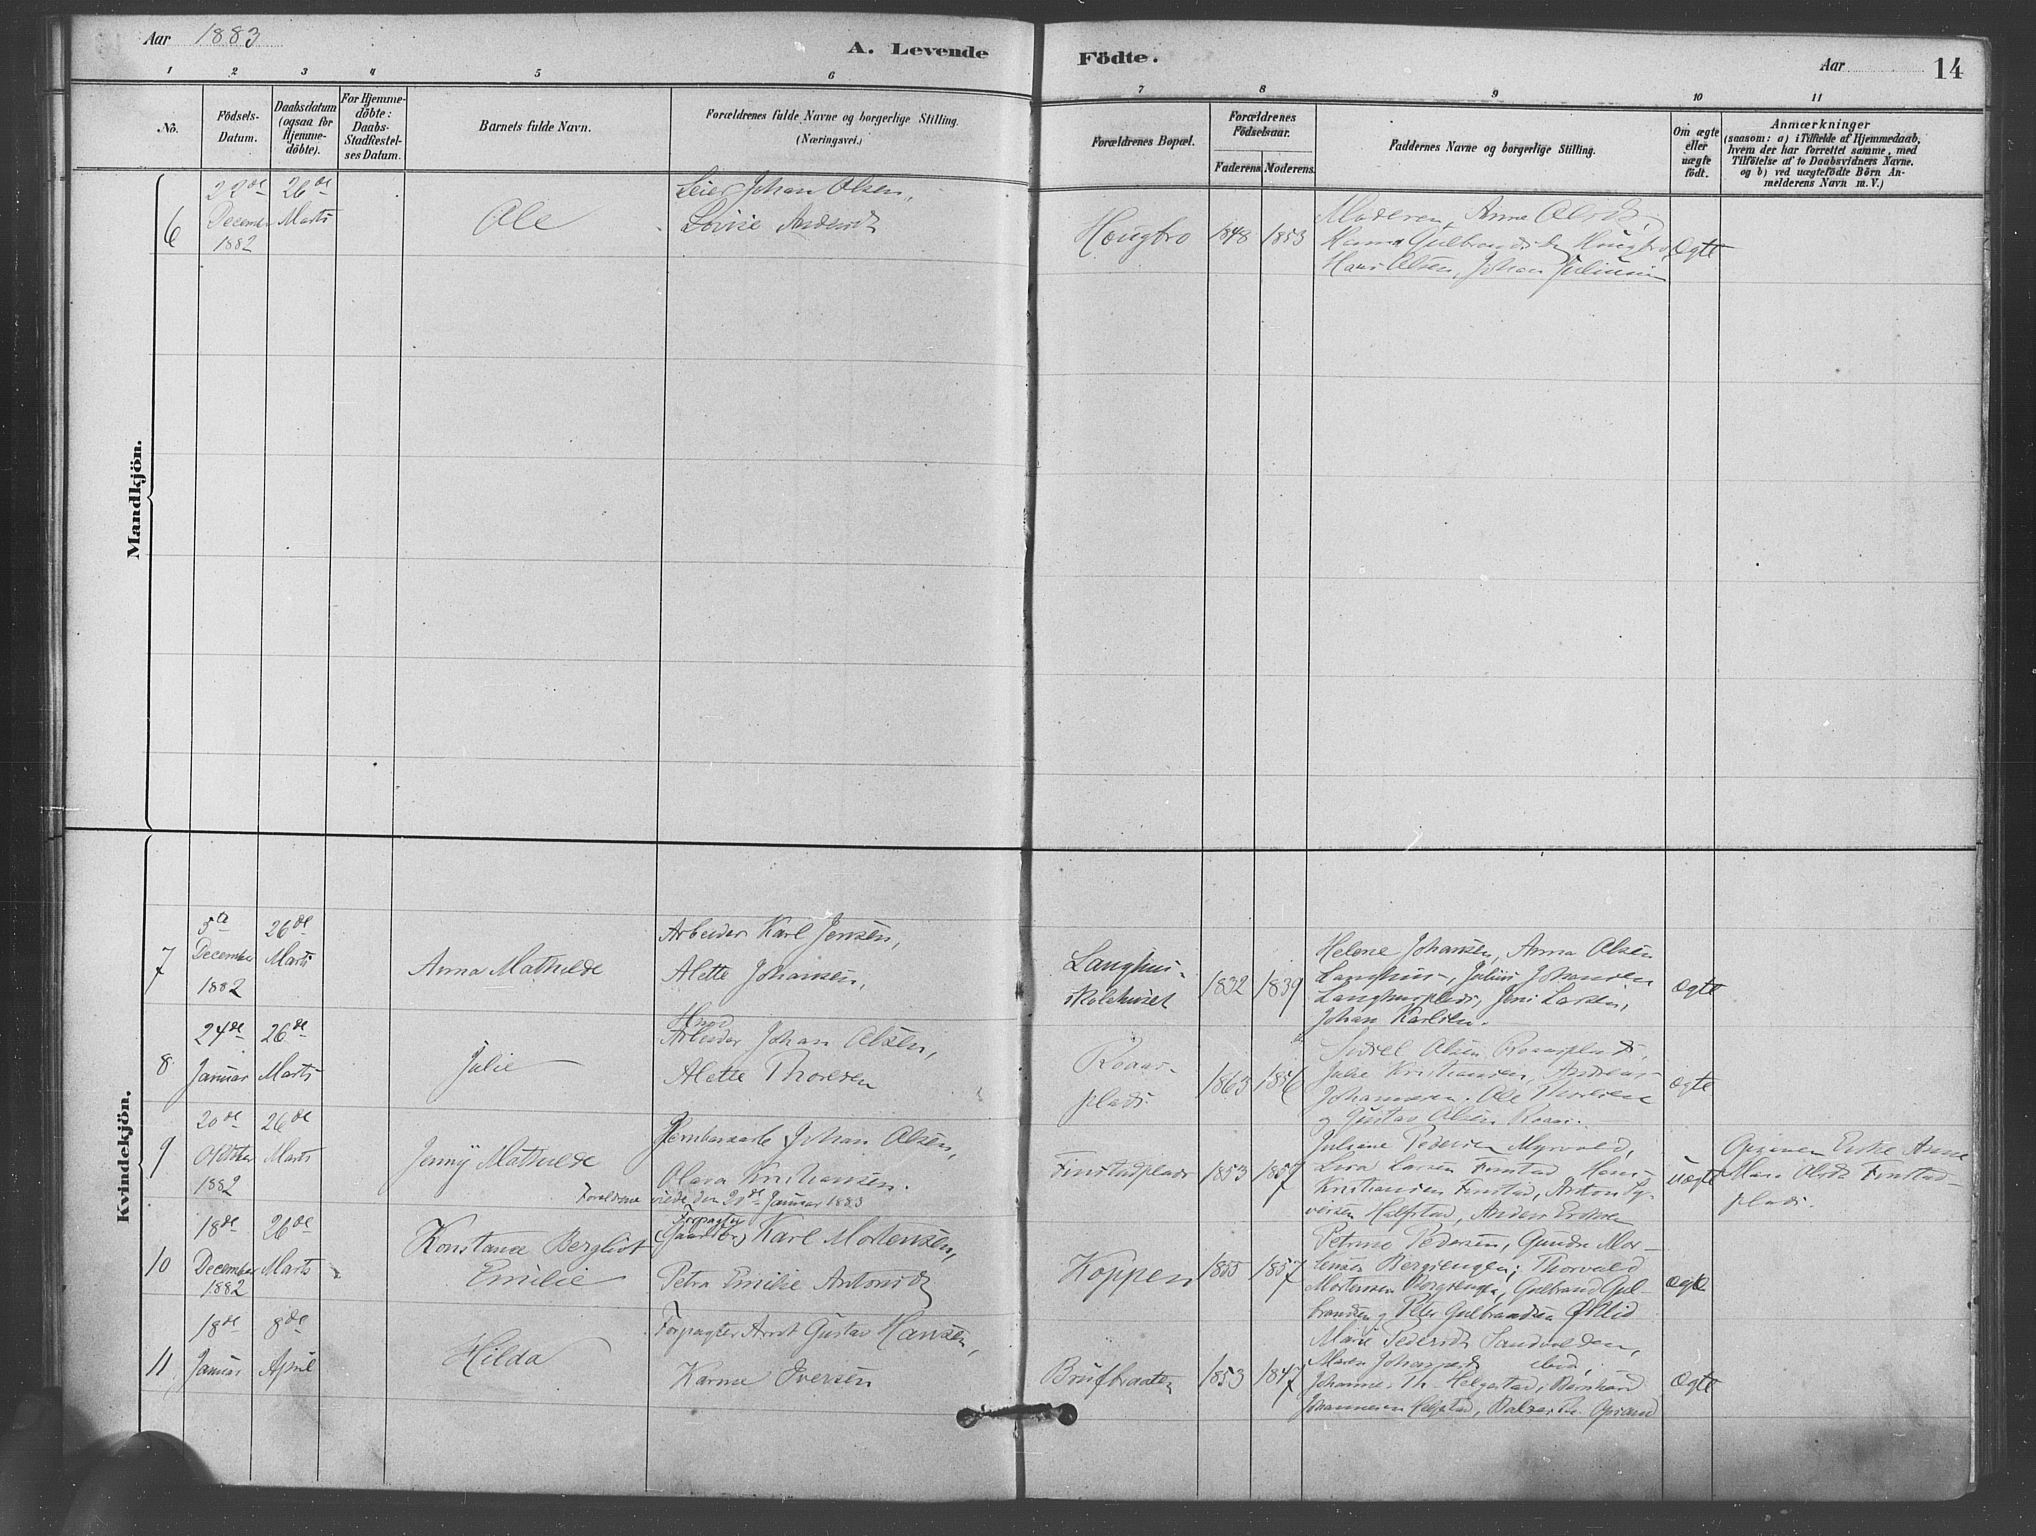 Aar 1883
A. Levende
Födte.
Aar
14
1 2 3 4 5 6 7 8 9 10 11
No.
Födsels-
Datum.
Daabsdatum
(ogsaa for
Hjemme-
döbte).
For Hjemme-
döbte:
Daabs-
Stadfæstel-
ses Datum.
Barnets fulde Navn.
Forældrenes fulde Navne og borgerlige Stilling.
(Næringsvei.)
Forældrenes Bopæl.
Forældrenes
Födselsaar.
Faderens
Moderens.
Faddernes Navne og borgerlige Stilling.
Om ægte
eller
uægte
födt.
Anmærkninger
(saasom: a) i Tilfælde af Hjemmedaab,
hvem der har forrettet samme, med
Tilföielse af to Daabsvidners Navne.
og b) ved uægtefödte Börn An-
melderens Navn m. V.)
Mandkjön.
6
22de
December
1882
26de
Marts
Ole
Johan Olsen,
Lovise Andersdt
Haugbro
1848
1853
Moderen, Anne
Gulbrandsen Haugbro,
Hans Olsen, Johan
Ægte
Kvindekjön.
7
5te
December
1882
26de
Marts
Anna Mathilde
Arbeider Karl Jensen,
Alette Johansen,
Langhus-
skolehuset
1832
1839
Helene Johansen, Anna Olsen
Langhus, Julius Johansen
Langhusplads, Jens Larsen,
Johan Karlsen.
Ægte
8
24de
Januar
26de
Marts
Julie
Arbeider Johan Olsen,
Alette Thoresen
Roaas-
plads
1863
1856
Olsen Roaasplads,
Julie Kristiansen, Andreas
Johannesen, Ole Thoresen
og Gustav Olsen Roaas.
Ægte
9
20de
Oktober
1882
26de
Marts
Jenny Mathilde
Johan Olsen,
Olava Kristiansen.
Forældrene viede den Januar 1883
Finstadplads
1853
1857
Juliane Pedersen Myrvold,
Lina Larsen Finstad, Hans
Kristiansen Finstad, Anton Sy-
versen Halfstad, Anders Eriksen
Uægte
Opgiven Enke Anne
Marie Olsdt Finstad-
plads.
10
18de
December
1882
26de
Marts
Konstanse Bergliot
Emilie
Forpagter
(Gaardbr.) Karl Mortensen,
Petra Emilie Antonsdt
Koppen
1855
1857
Petrine Pedersen, Gunda Mor-
tensen Bergsengen; Thorvald
Mortensen Bergsengen, Gulbrand Gul-
brandsen og Peter Gulbrandsen
Ægte
11
18de
Januar
8de
April
Hilda
Forpagter Arnt Gustav Hansen,
Karine Iversen
Brufbraaten
1853
1847
Marie Pedersdt Sandvolden,
Maren ibid,
Johannes Th. Helgestad, Bernhard
Johannesen Helgestad,
Ægte